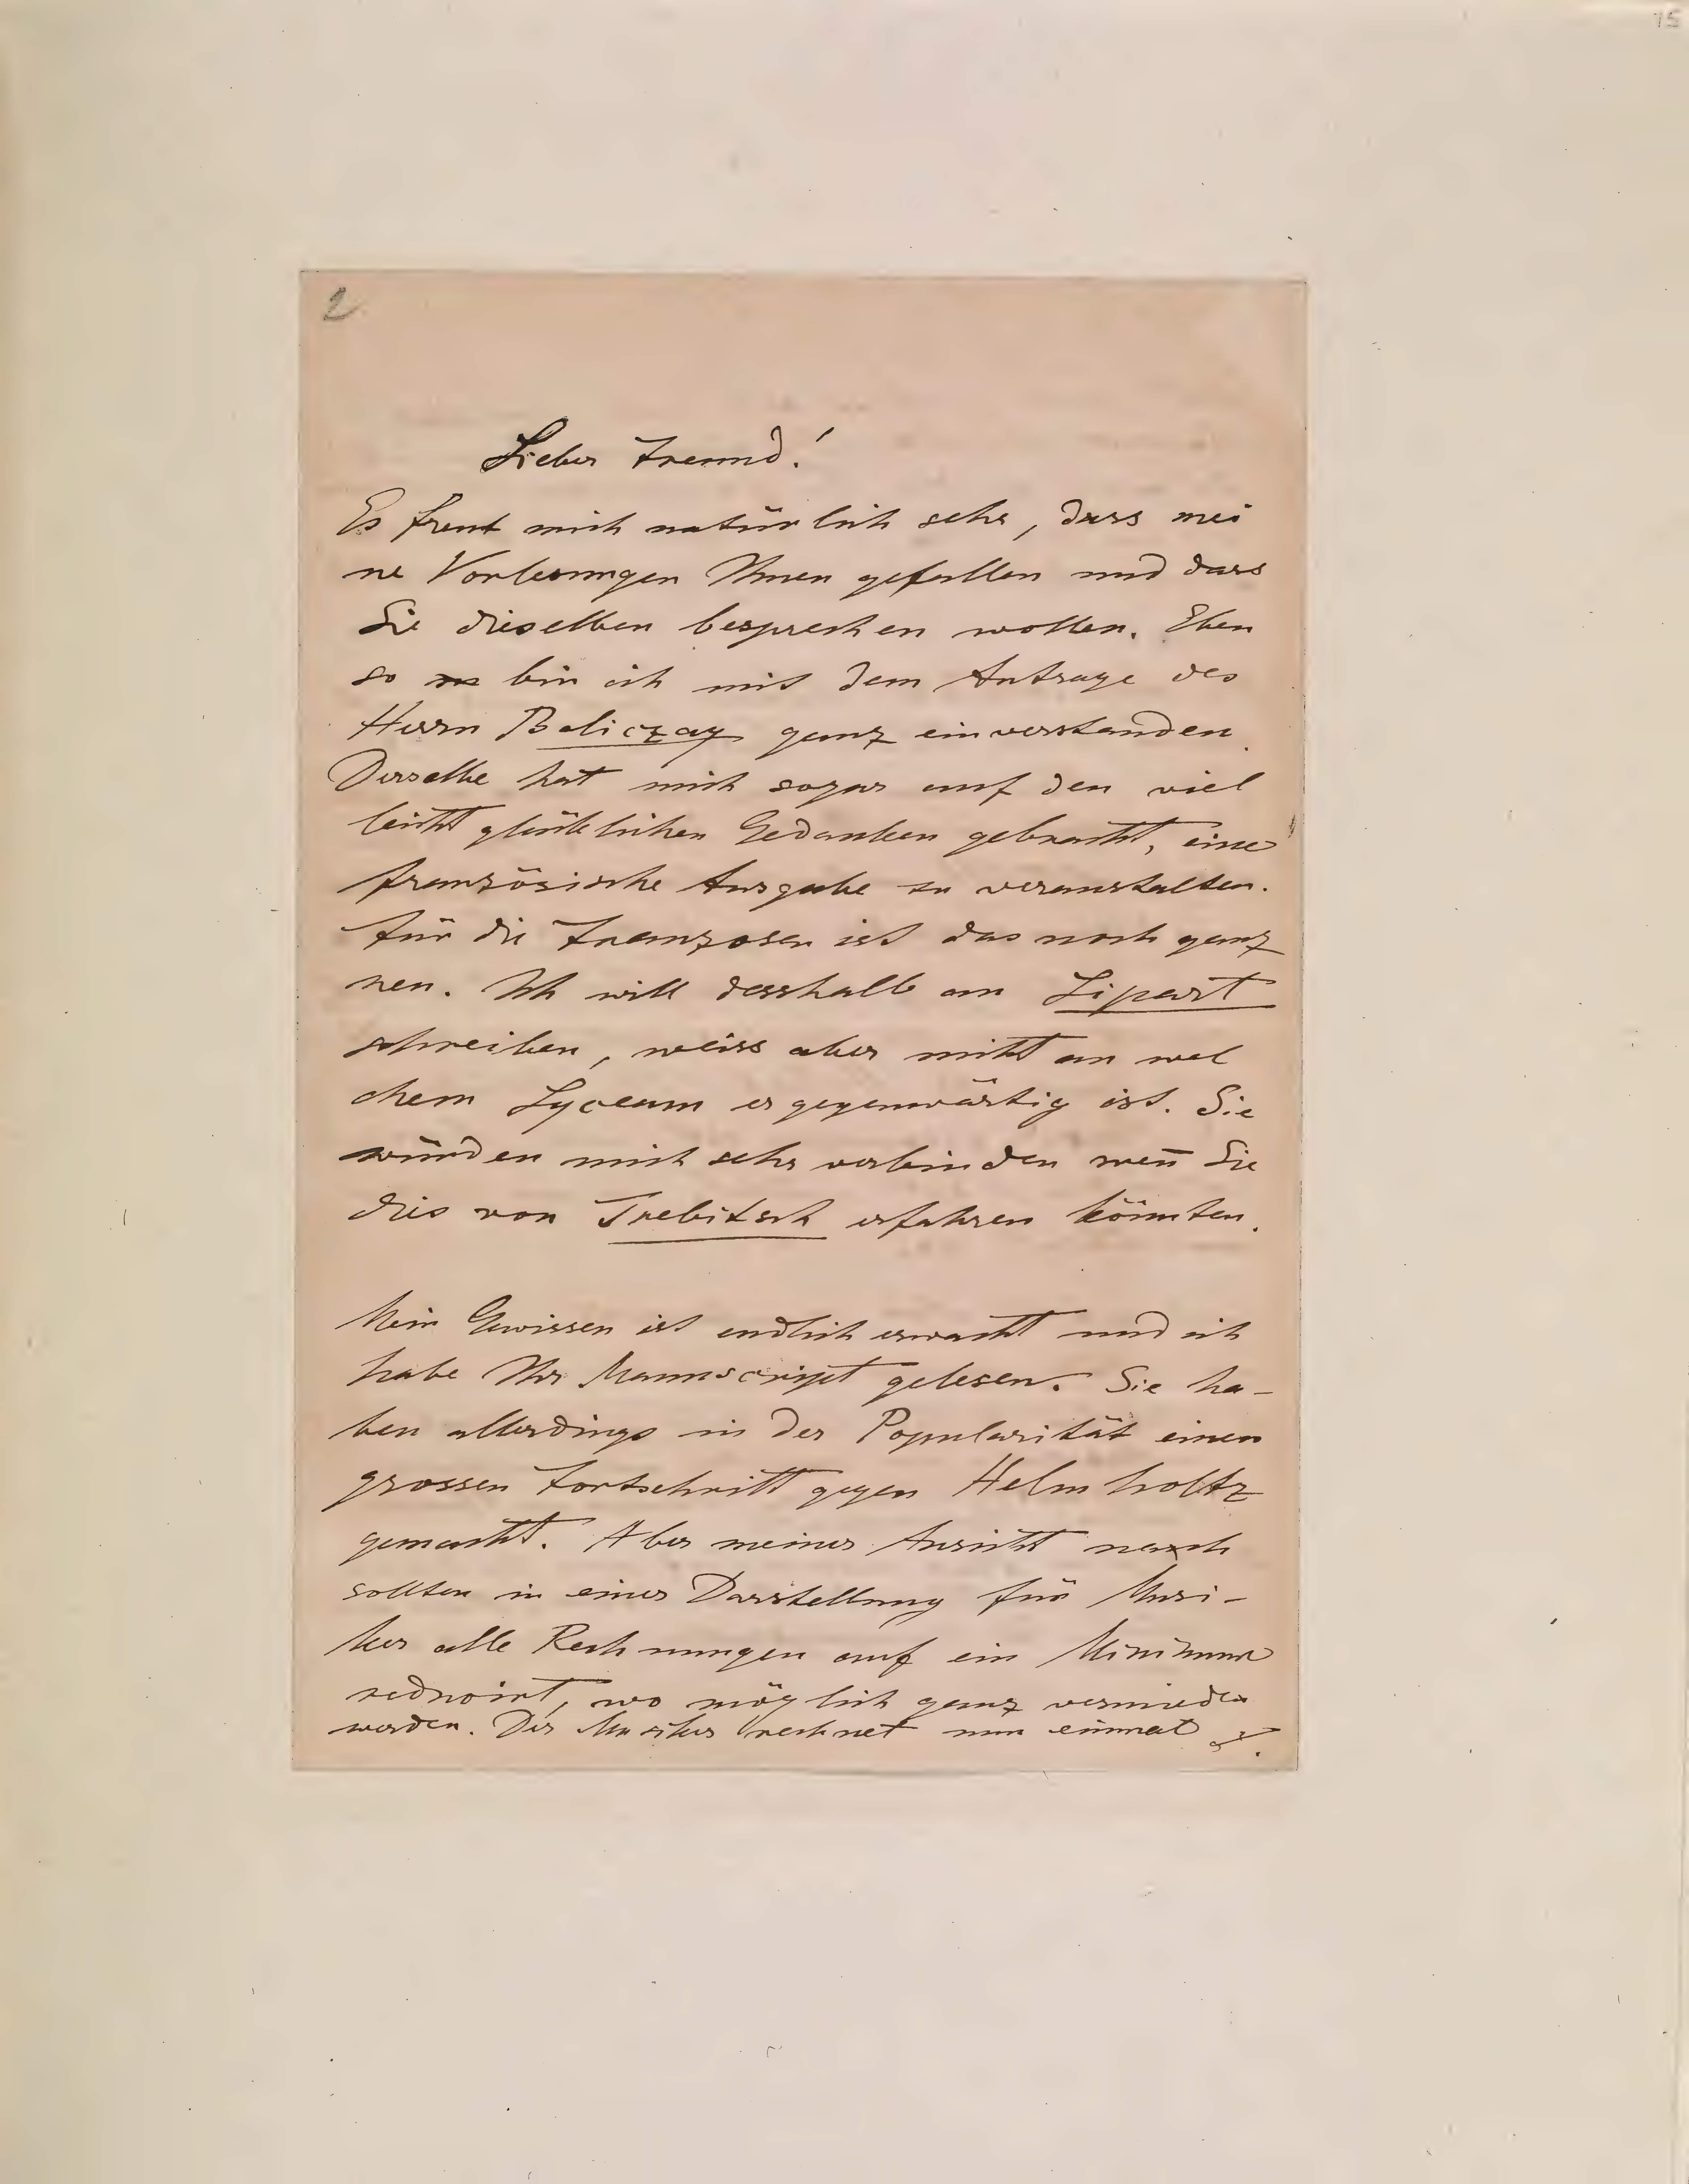 15
2
Lieber Freund!
Es freut mich natürlich sehr, dass mei
ne Vorlesungen Ihnen gefallen und dass
Sie dieselben besprechen wollen. Eben
so bin ich mit dem Antrage des
Herrn Beliczay ganz einverstanden.
Derselbe hat mich sogar auf den viel
leicht glücklichen Gedanken gebracht, eine
französische Ausgabe zu veranstalten.
Für die Franzosen ist das noch ganz
neu. Ich will desshalb an Lipart
schreiben, weiss aber nicht an wel
chem Lyceum er gegenwärtig ist. Sie
würden mich sehr verbinden wen̄ Sie
dies von Trebitsch erfahren könnten.
Mein Gewissen ist endlich erwacht und ich
habe Ihr Manuscript gelesen. Sie ha-
ben allerdings in der Popularität einen
grossen Fortschritt gegen Helmholtz
gemacht. Aber meiner Ansicht nach
sollten in einer Darstellung für Musi-
ker alle Rechnungen auf ein Minimum
reducirt, wo möglich ganz vermieden
werden. Der Musiker rechnet nun einmal